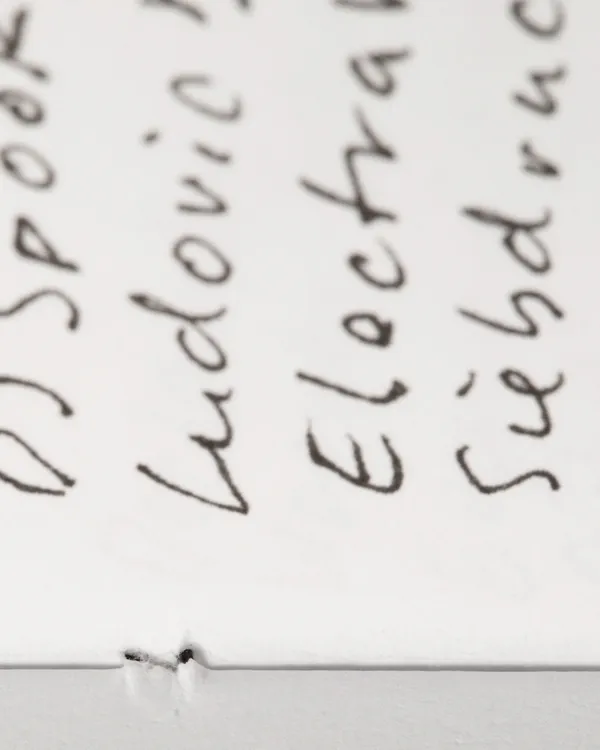 DJ Spook
Ludovic
Electra
Siebdruc